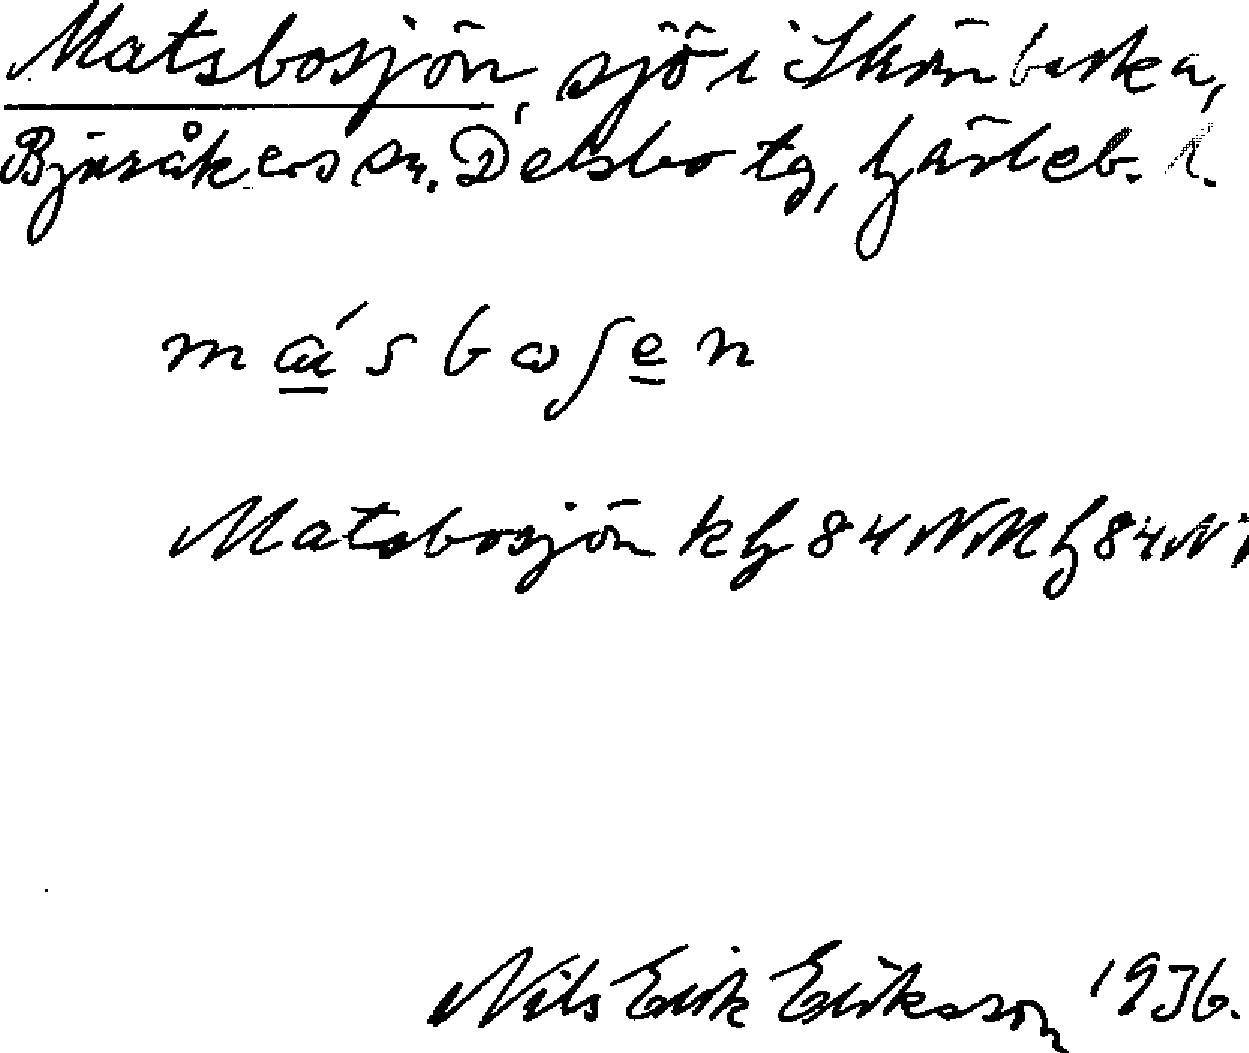 Matsbosjön, sjö i Skön berka,
Bjuråkers sn. Delsbo tg, Gävleb. l.
másbosen
Matsbosjön kg 84 NM g 84 N
Nils Erik Eriksson 1936.